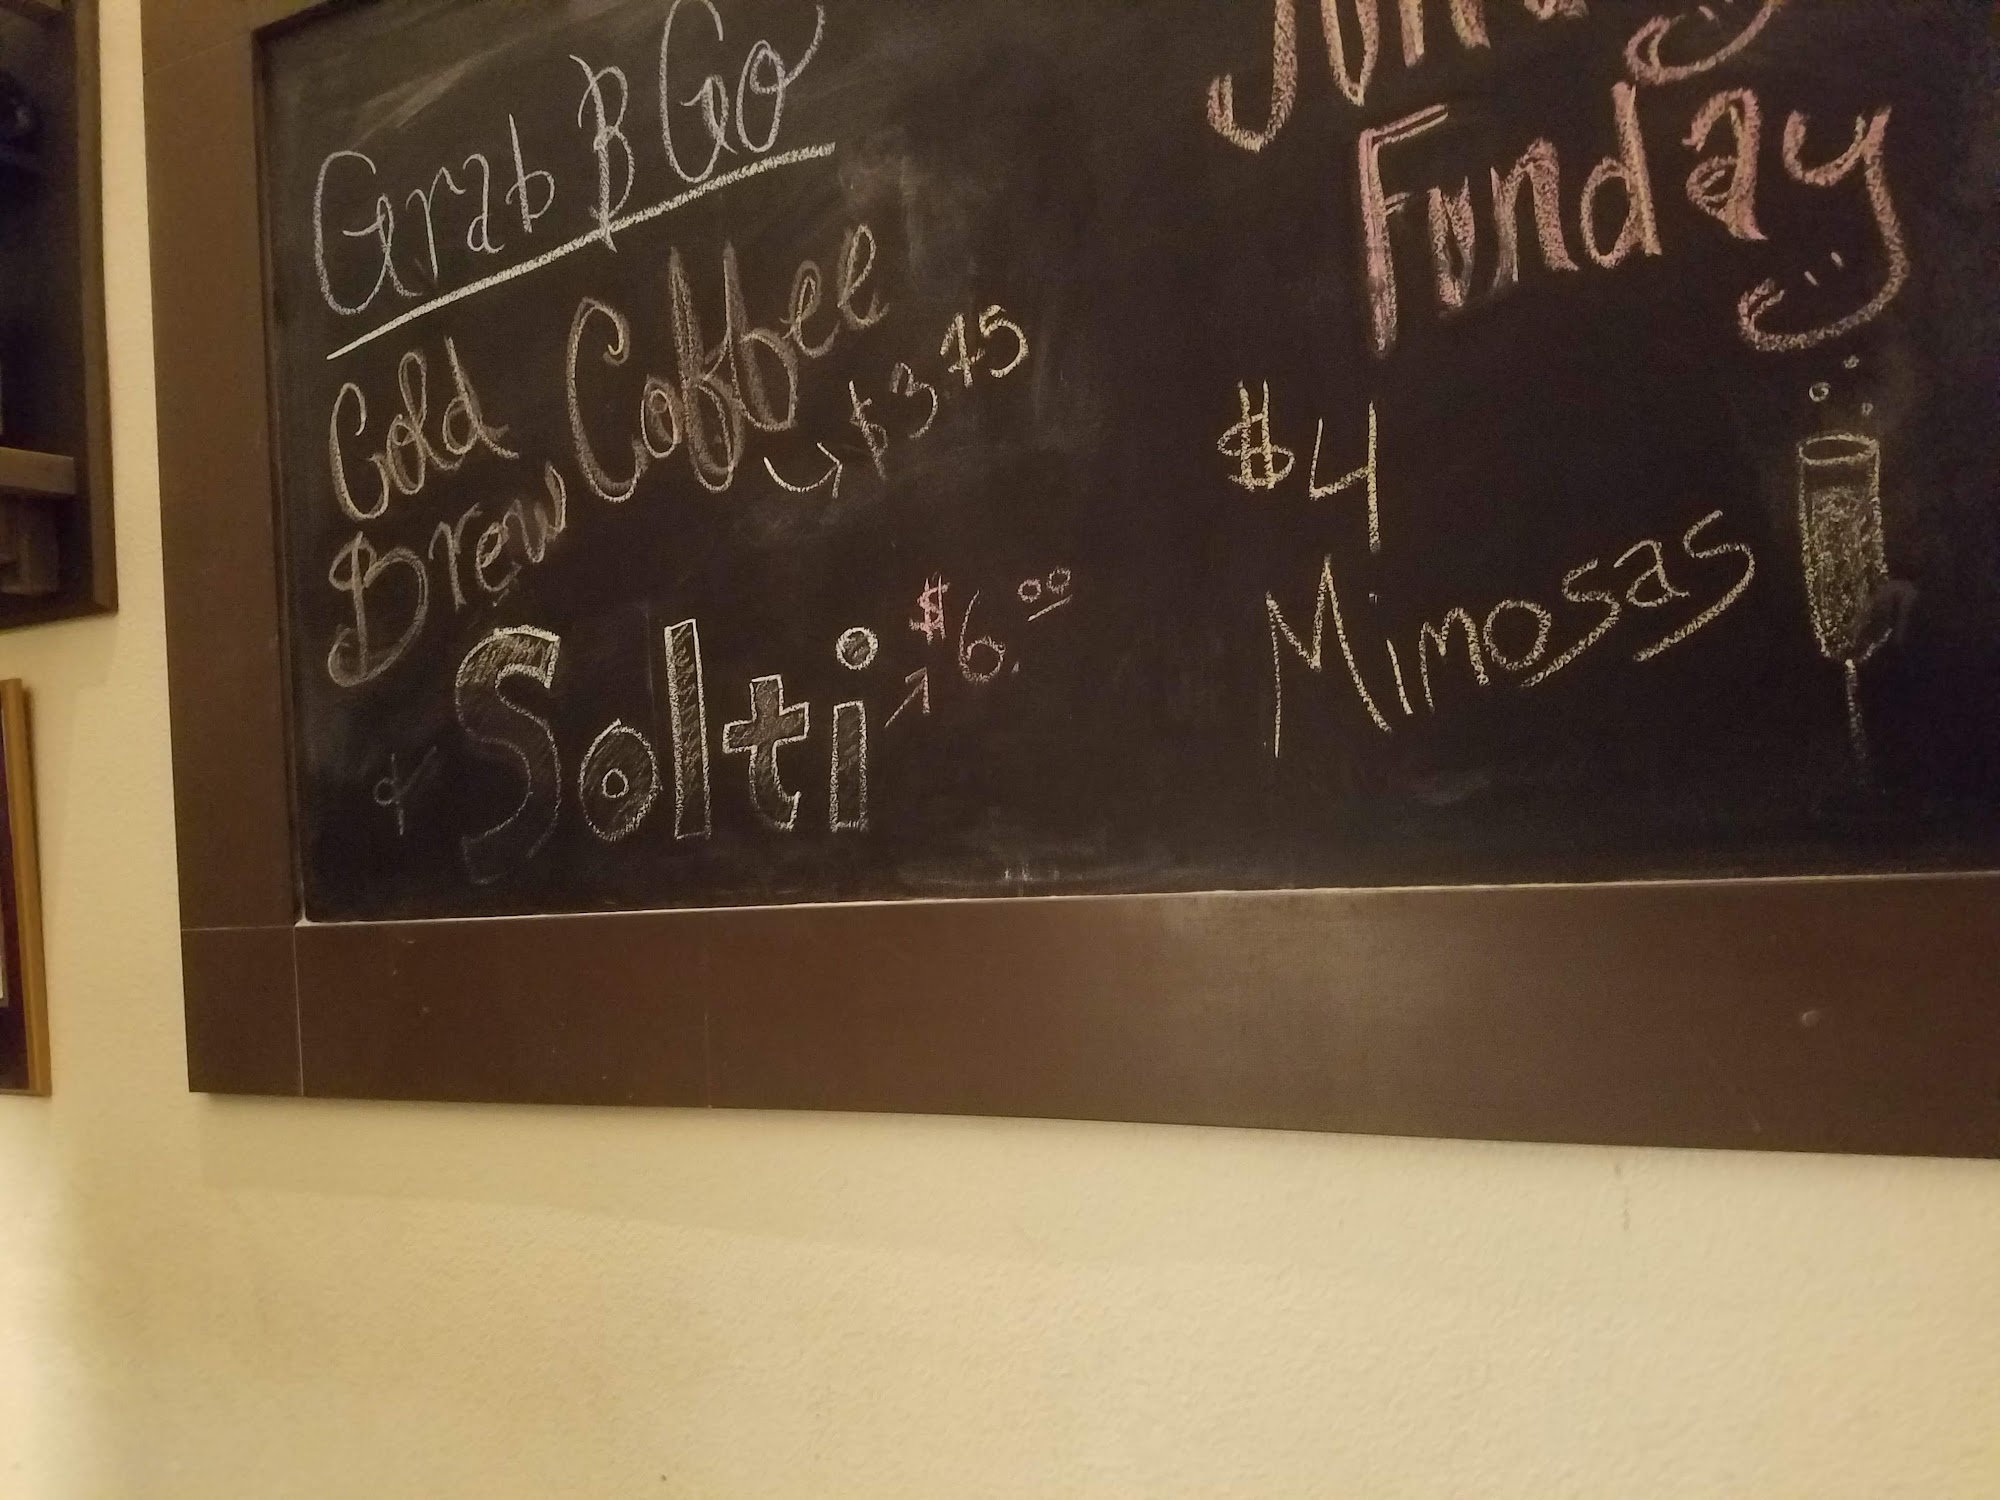 Grab & Go
Cold
Brew Coffee
→ $3.75
& Solti → $6.00
Funday
$4
Mimosas